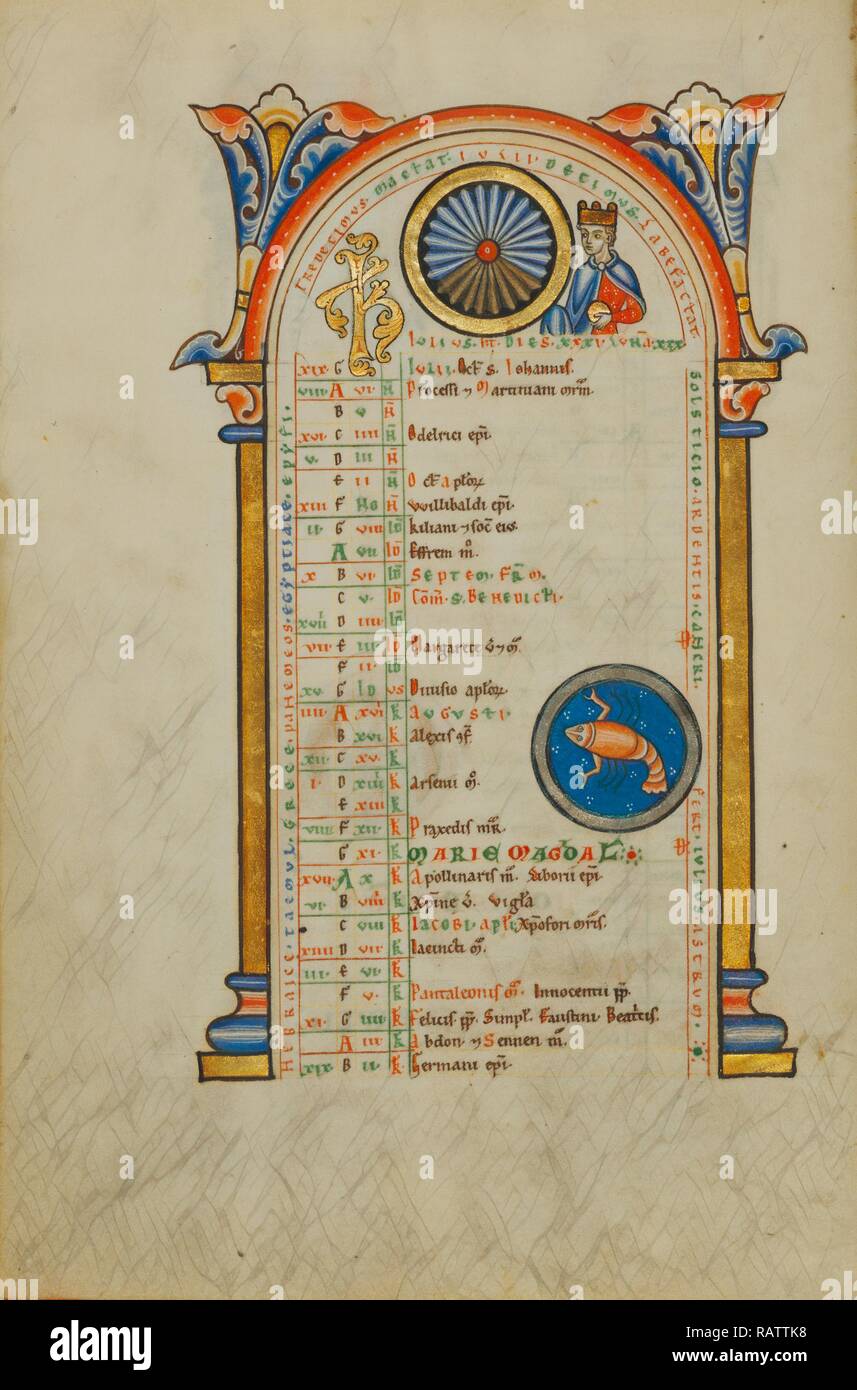 TREDECIMUS MACTAT IULII DECIMUS LABEFACTAT
KL IULIUS ht DIES XXXI LUNA XXX
xix G IULII Oct s. Iohannis.
viii A vi N Processi ⁊ Martiniani mrm.
B v N
xvi C iiii N Odelrici epi.
v D iii N
E ii N Oct aplorꝝ
xiii F No N Willibaldi epi.
ii G viii ID Kiliani ⁊ soc eius
A vii ID Effrem m.
x B vi ID Septem frm.
C v ID Com. s. Benedicti.
xviii D iiii ID
vii E iii ID Margarete v ⁊ m.
F ii ID
xv G ID us Diuisio aplorꝝ
iiii A xvii K AUGUSTI.
B xvi K Alexis cf.
xii C xv K
i D xiiii K Arsenii m.
E xiii K
viiii F xii K Praxedis mr.
G xi K MARIE MAGDAL
xvii A x K Apollinaris m. Liborii epi.
vi B viiii K Xpine v. Vigla
C viii K Iacobi apli. Xpofori mris.
xiiii D vii K Iacincti m.
iii E vi K
F v K Pantaleonis m. Innocentii pp.
xi G iiii K Felicis pp. Simpl. Faustini. Beatcis.
A iii K Abdon ⁊ Sennen m.
xix B ii K Germani epi.
HEBRAICE. TAEMUL. GRECE. PANEMEOS. EGYPTIACE. EPYFI.
SOLSTICIO ARDENTIS CANCRI
FERT. IULIUS ASTRUM.
alamy
Image ID: RATTK8
www.alamy.com